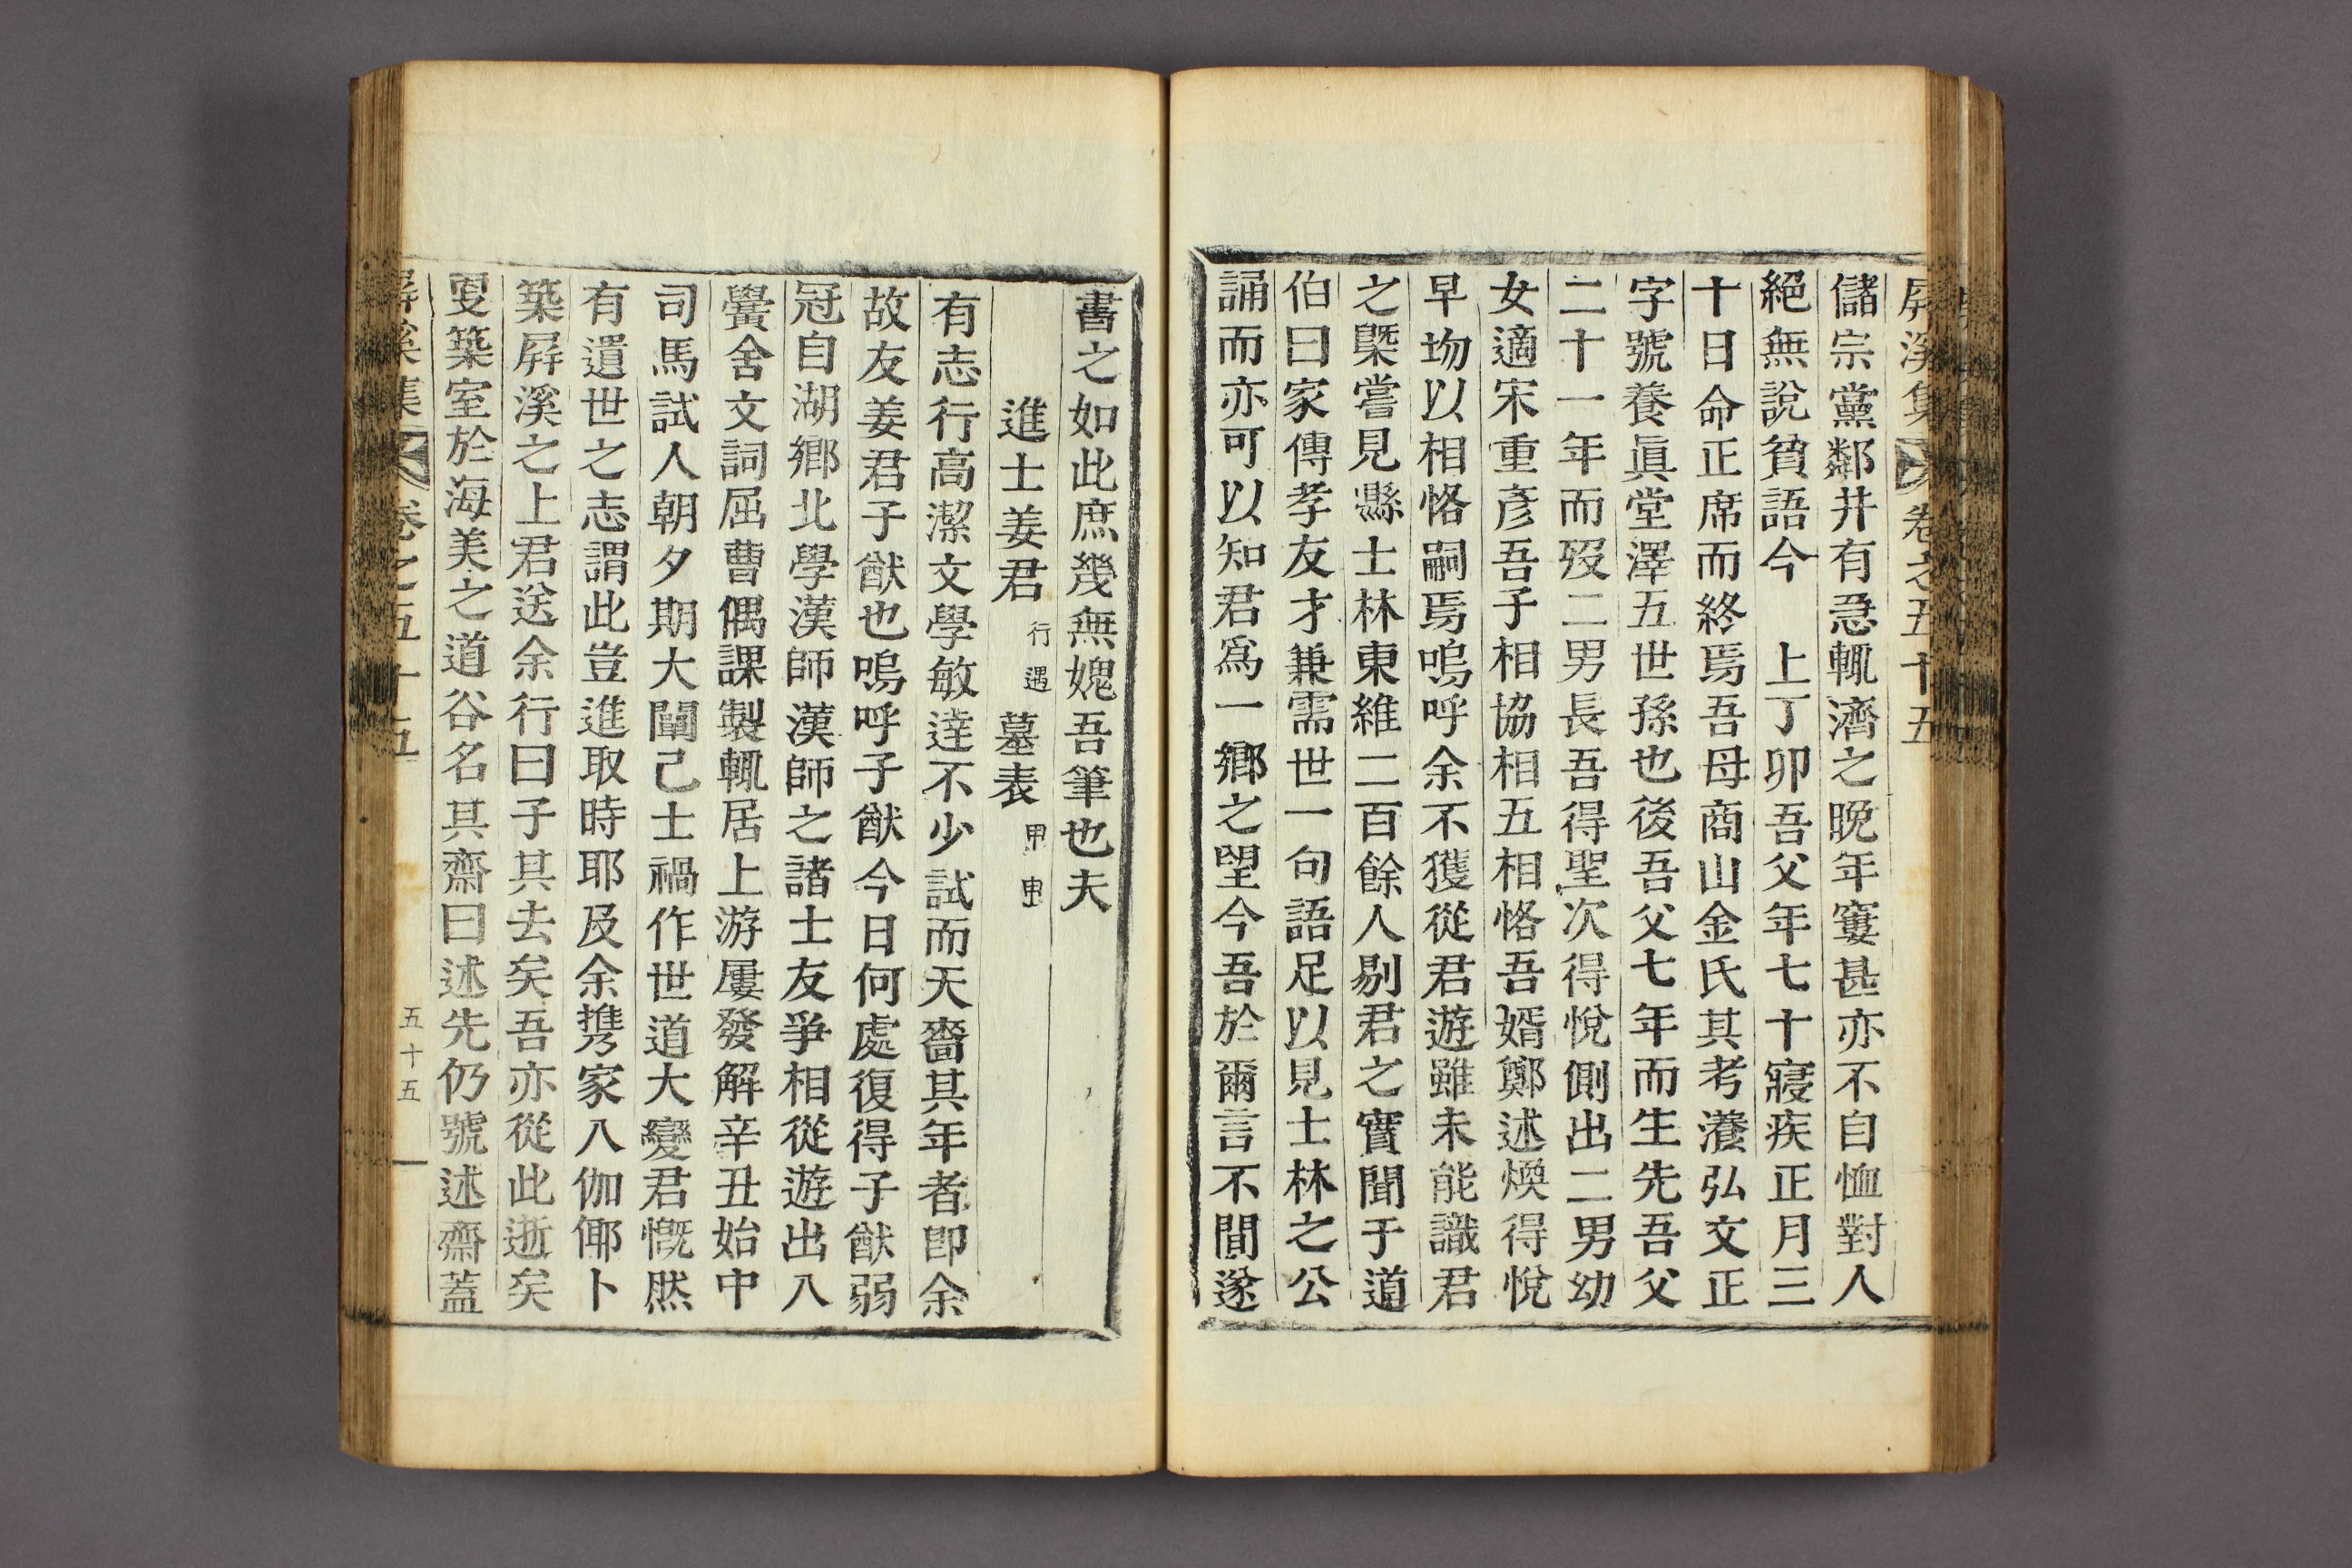 屛溪集 卷之五十五
儲宗黨鄰井有急輒濟之晩年窶甚亦不自恤對人
絕無說貧語今 上丁卯吾父年七十寢疾正月三
十日命正席而終焉吾母商山金氏其考瀁弘文正
字號養眞堂澤五世孫也後吾父七年而生先吾父
二十一年而歿二男長吾得聖次得悅側出二男幼
女適宋重彥吾子相協相五相恪吾婿鄭述煥得悅
早歾以相恪嗣焉嗚呼余不獲從君遊雖未能識君
之槩嘗見縣士林東維二百餘人剔君之實聞于道
伯曰家傳孝友才兼需世一句語足以見士林之公
誦而亦可以知君爲一鄕之望今吾於爾言不間遂
書之如此庶幾無媿吾筆也夫
進士姜君行遇墓表甲申
有志行高潔文學敏達不少試而天嗇其年者卽余
故友姜君子猷也嗚呼子猷今日何處復得子猷弱
冠自湖鄕北學漢師漢師之諸士友爭相從遊出入
黌舍文詞屈曹偶課製輒居上游屢發解辛丑始中
司馬試人朝夕期大闡己士禍作世道大變君慨然
有遺世之志謂此豈進取時耶及余携家入伽倻卜
築屛溪之上君送余行曰子其去矣吾亦從此逝矣
更築室於海美之道谷名其齋曰述先仍號述齋蓋
屛溪集 卷之五十五 五十五